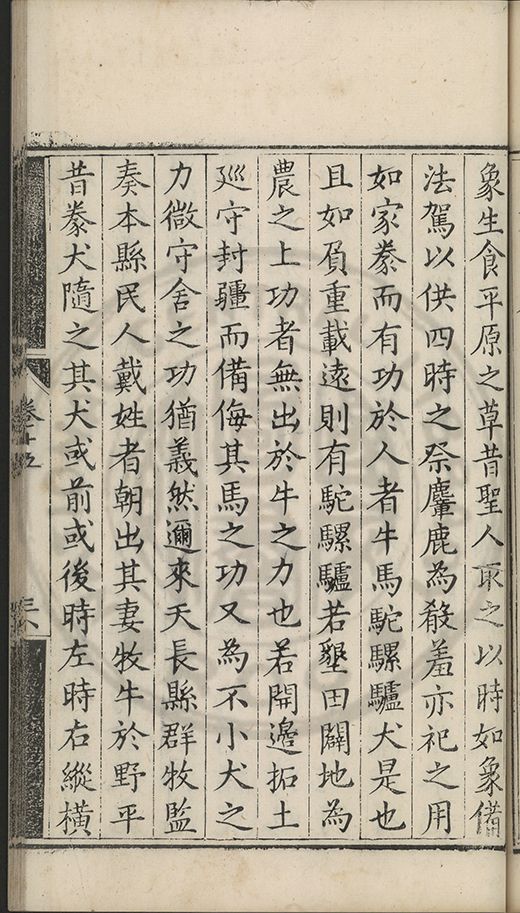 象生食平原之草昔聖人取之以時如象備
法駕以供四時之祭麞鹿為殽羞亦祀之用
如家豢而有功於人者牛馬駝騾驢犬是也
且如負重載遠則有駝騾驢若墾田闢地為
農之上功者無出於牛之力也若開邊拓土
廵守封疆而備侮其馬之功又為不小犬之
力微守舍之功猶義然邇來天長縣群牧監
奏本縣民人戴姓者朝出其妻牧牛於野平
昔豢犬隨之其犬或前或後時左時右縱橫
卷十五
三八